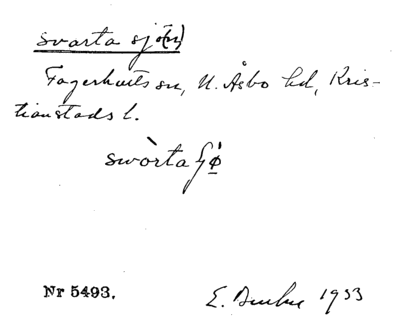 svarta sjö(n)
Fagerhults sn, N. Åsbo hd, Kris-
tianstads l.
swòrta ʃø̀
Nr 5493.
E. 1933